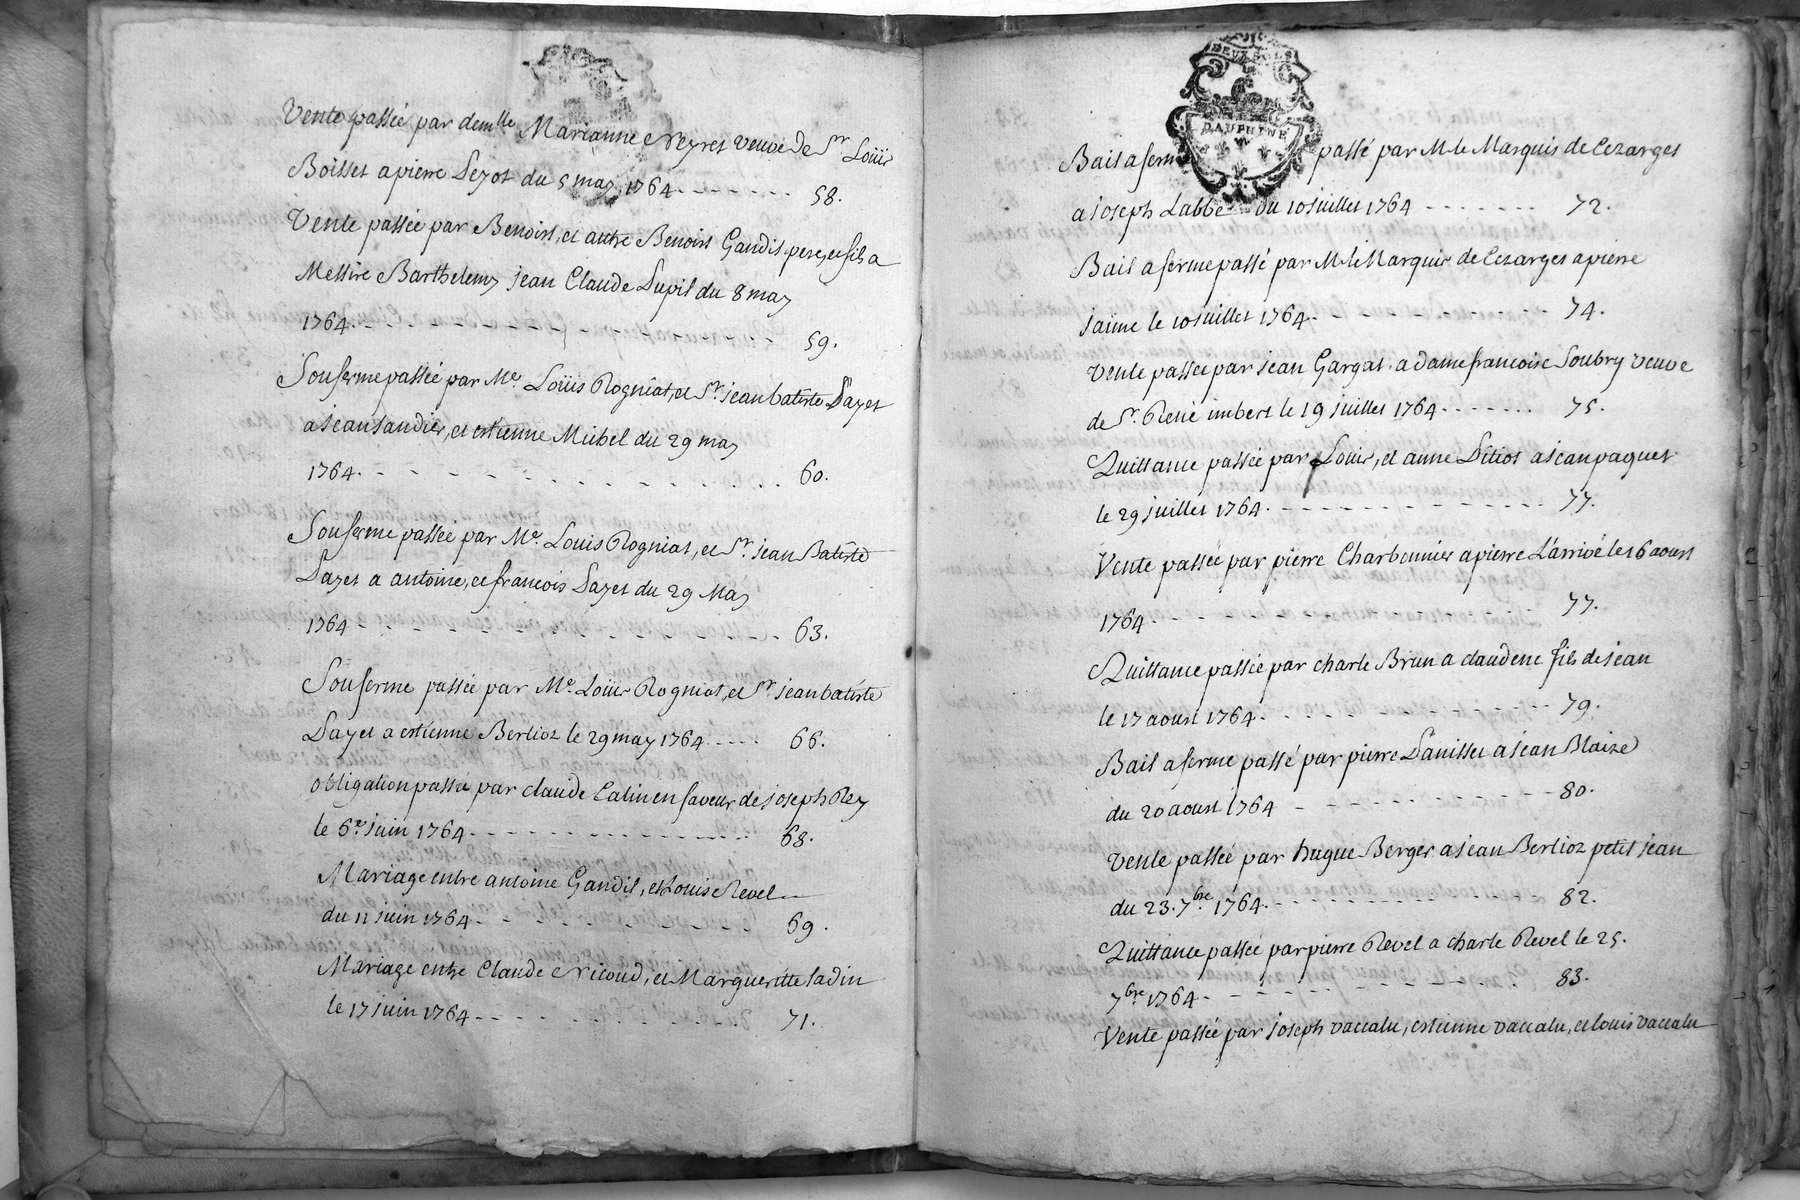 Vente passée par demlle Marianne Neyret veuve de Sr Loüis
Boisset a pierre Lezot du 5 may 1764 58.
Vente passée par Benoist, et autre Benoist Gandil pere, et fils a
Messire Barthelemy jean Claude Lupil du 8 may
1764. 59.
Sousferme passée par Me. Loüis Rogniat, et Sr. jean batiste Payet
a jean landier, et estienne Michel du 29 may
1764. 60.
Sousferme passée par Me. Louis Rogniat, et Sr. jean Batiste
Payet a antoine, et francois Payet du 29 May
1764 63.
Sousferme passée par Me. Loüis Rogniat, et Sr. jean batiste
Payet a estienne Berlioz le 29 may 1764 66.
obligation passée par claude Catin en faveur de joseph Rey
le 6e juin 1764 68.
Mariage entre antoine Gandil, et Louise Revel
du 11 juin 1764 69.
Mariage entre Claude Nicoud, et Margueritte ladin
le 17 juin 1764 71.
DEUX SOLS
DAUPHINE
Bail a ferme passé par M. le Marquis de Cezarges
a joseph Labbe du 10 juillet 1764 72.
Bail a ferme passé par M. le Marquis de Cezarges a pierre
jaime le 10 juillet 1764 74.
Vente passée par jean Gargat a dame francoise Soubry veuve
de Sr. René imbert le 19 juillet 1764 75.
Quittance passée par Louis, et anne Litiot a jean paquet
le 29 juillet 1764. 77.
Vente passée par pierre Charbonnier a pierre L'arrivé le 16 aoust
1764 77.
Quittance passée par charle Brun a claude ne fils de jean
le 17 aoust 1764. 79.
Bail a ferme passé par pierre Danisset a jean Blaize
du 20 aoust 1764 80.
Vente passée par hugue Berger a jean Berlioz petit jean
du 23. 7bre. 1764. 82.
Quittance passée par pierre Revel a charle Revel le 25.
7bre 1764. 83.
Vente passée par joseph vaccalu, estienne vaccalu, et louis vaccalu